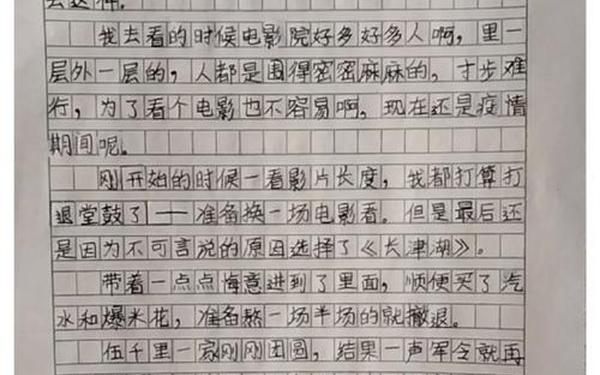 去这种.
我去看的时候电影院好多好多人啊，里一
层外一层的，人都是围得密密麻麻的，寸步难
行，为了看个电影也不容易啊，现在还是疫情
期间呢。
刚开始的时候一看影片长度，我都打算打
退堂鼓了——准备换一场电影看。但是最后还
是因为不可言说的原因选择了《长津湖》。
带着一点点悔意进到了里面，顺便买了汽
水和爆米花，准备熬一场半场的就撤退。
伍千里一家刚刚团圆，结果一声军令就再